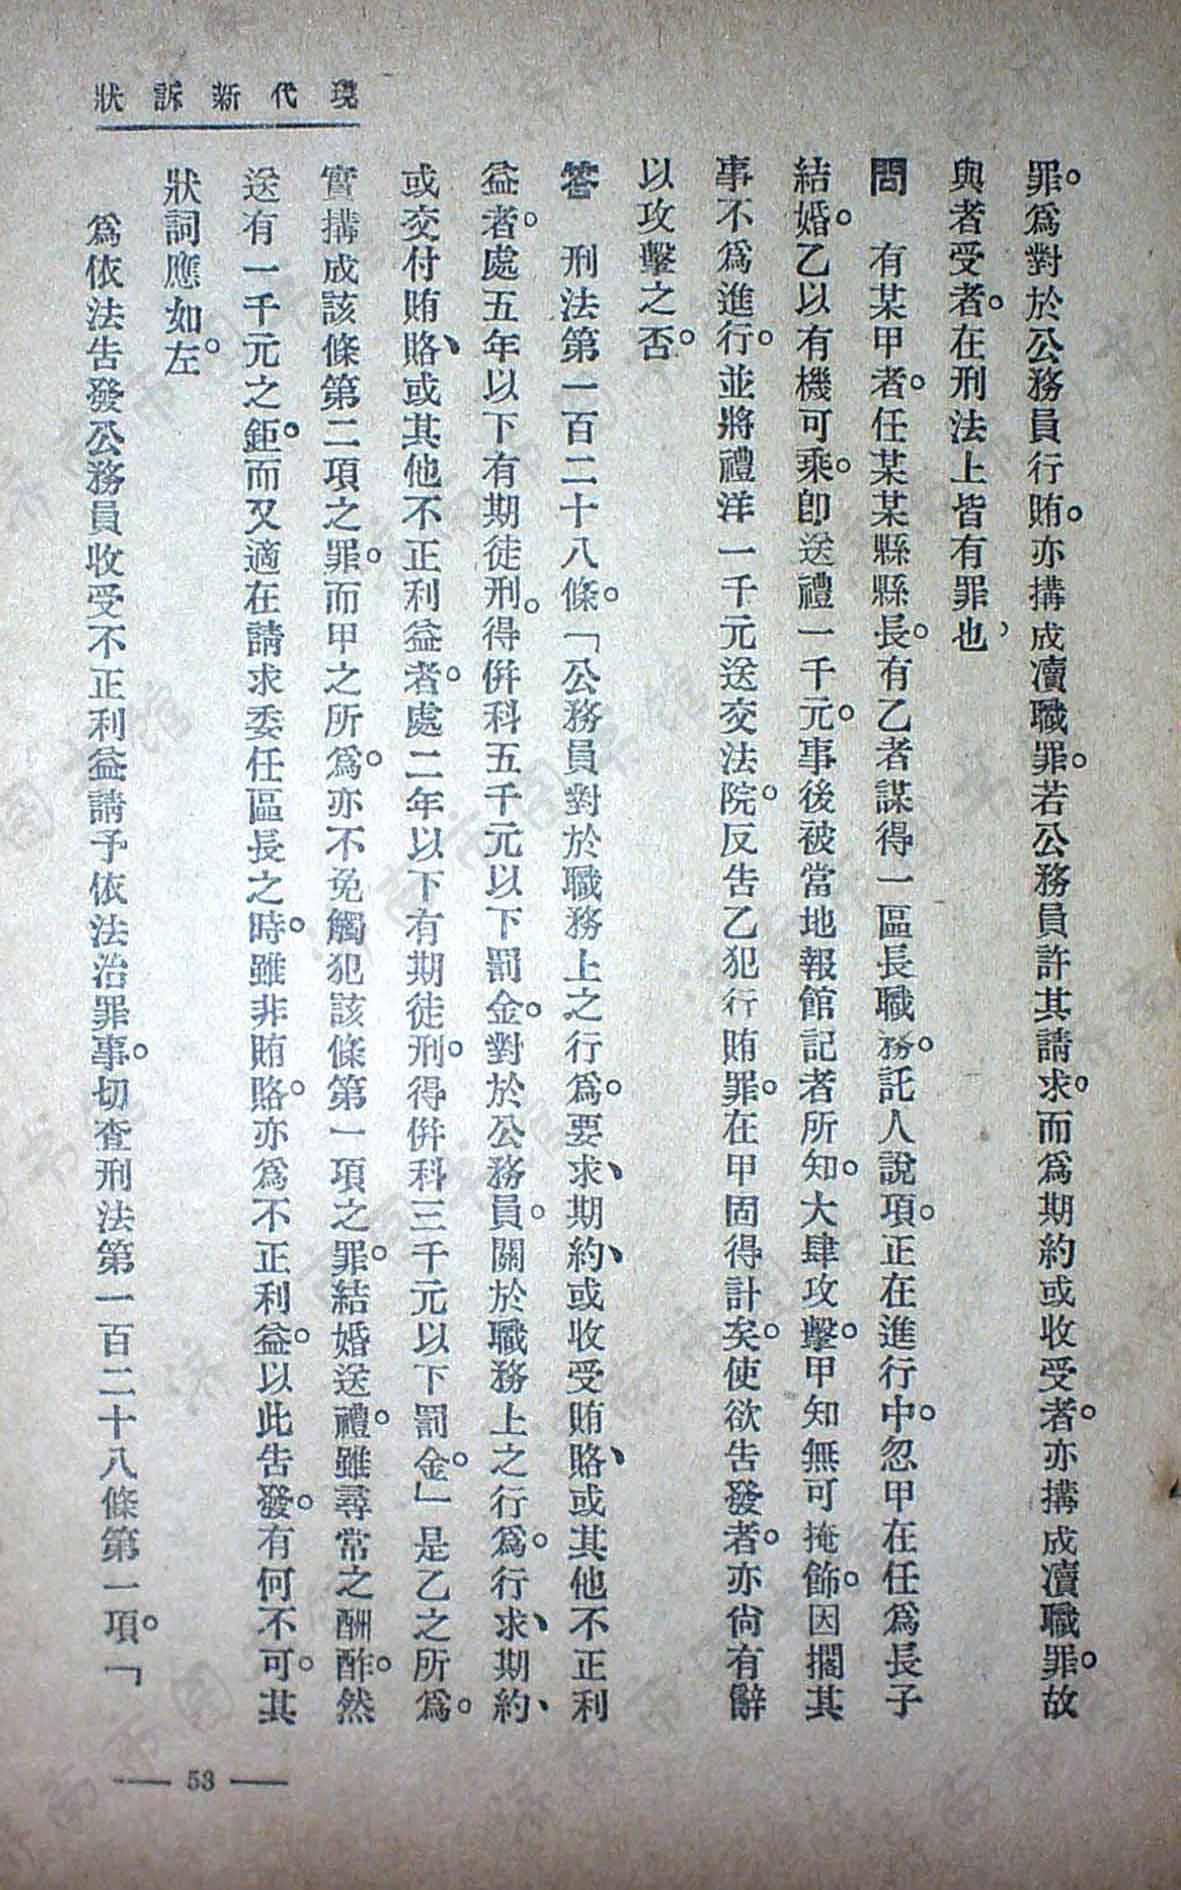 現代新訴狀
罪。爲對於公務員行賄。亦搆成瀆職罪。若公務員許其請求。而爲期約或收受者。亦搆成瀆職罪。故
與者受者。在刑法上皆有罪也、
問　有某甲者。任某某縣縣長。有乙者謀得一區長職務。託人說項。正在進行中。忽甲在任爲長子
結婚。乙以有機可乘。卽送禮一千元。事後被當地報館記者所知。大肆攻擊。甲知無可掩飾。因擱其
事不爲進行。並將禮洋一千元送交法院。反告乙犯行賄罪。在甲固得計矣。使欲告發者。亦尙有辭
以攻擊之否。
答　刑法第一百二十八條。「公務員對於職務上之行爲。要求、期約、或收受賄賂、或其他不正利
益者。處五年以下有期徒刑。得倂科五千元以下罰金。對於公務員。關於職務上之行爲。行求、期約、
或交付賄賂、或其他不正利益者。處二年以下有期徒刑。得倂科三千元以下罰金。」是乙之所爲。
實搆成該條第二項之罪。而甲之所爲。亦不免觸犯該條第一項之罪。結婚送禮。雖尋常之酬酢。然
送有一千元之鉅。而又適在請求委任區長之時。雖非賄賂。亦爲不正利益。以此告發。有何不可。其
狀詞應如左。
爲依法告發公務員收受不正利益請予依法治罪事。切查刑法第一百二十八條第一項。「
— 53 —